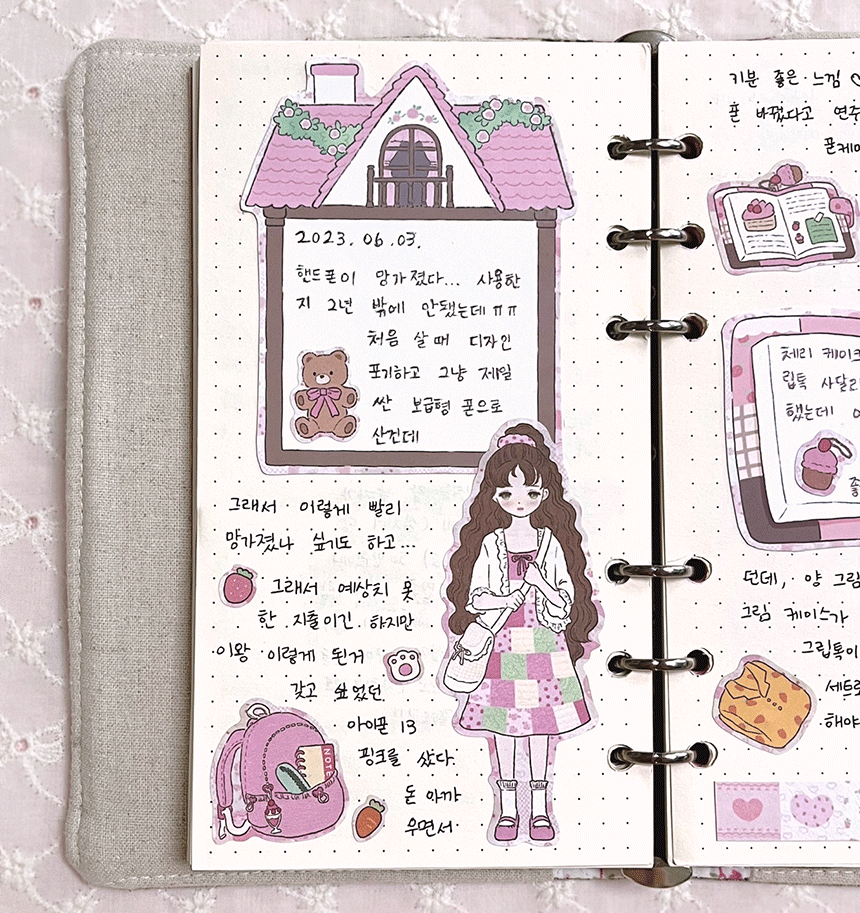 2023. 06. 03.
핸드폰이 망가졌다... 사용한
지 2년 밖에 안됐는데 ㅠㅠ
처음 살 때 디자인
포기하고 그냥 제일
싼 보급형 폰으로
산건데
그래서 이렇게 빨리
망가졌나 싶기도 하고...
그래서 예상치 못
한 지출이긴 하지만
이왕 이렇게 된거
갖고 싶었던
아이폰 13
핑크를 샀다
돈 아까
우면서
NOTE
기분 좋은 느낌 ♡
폰 바꿨다고 연주
폰케이
체리 케이크
립톡 사달라
했는데
좋
던데, 양 그림
그림 케이스가
그립톡이
세트로
해야